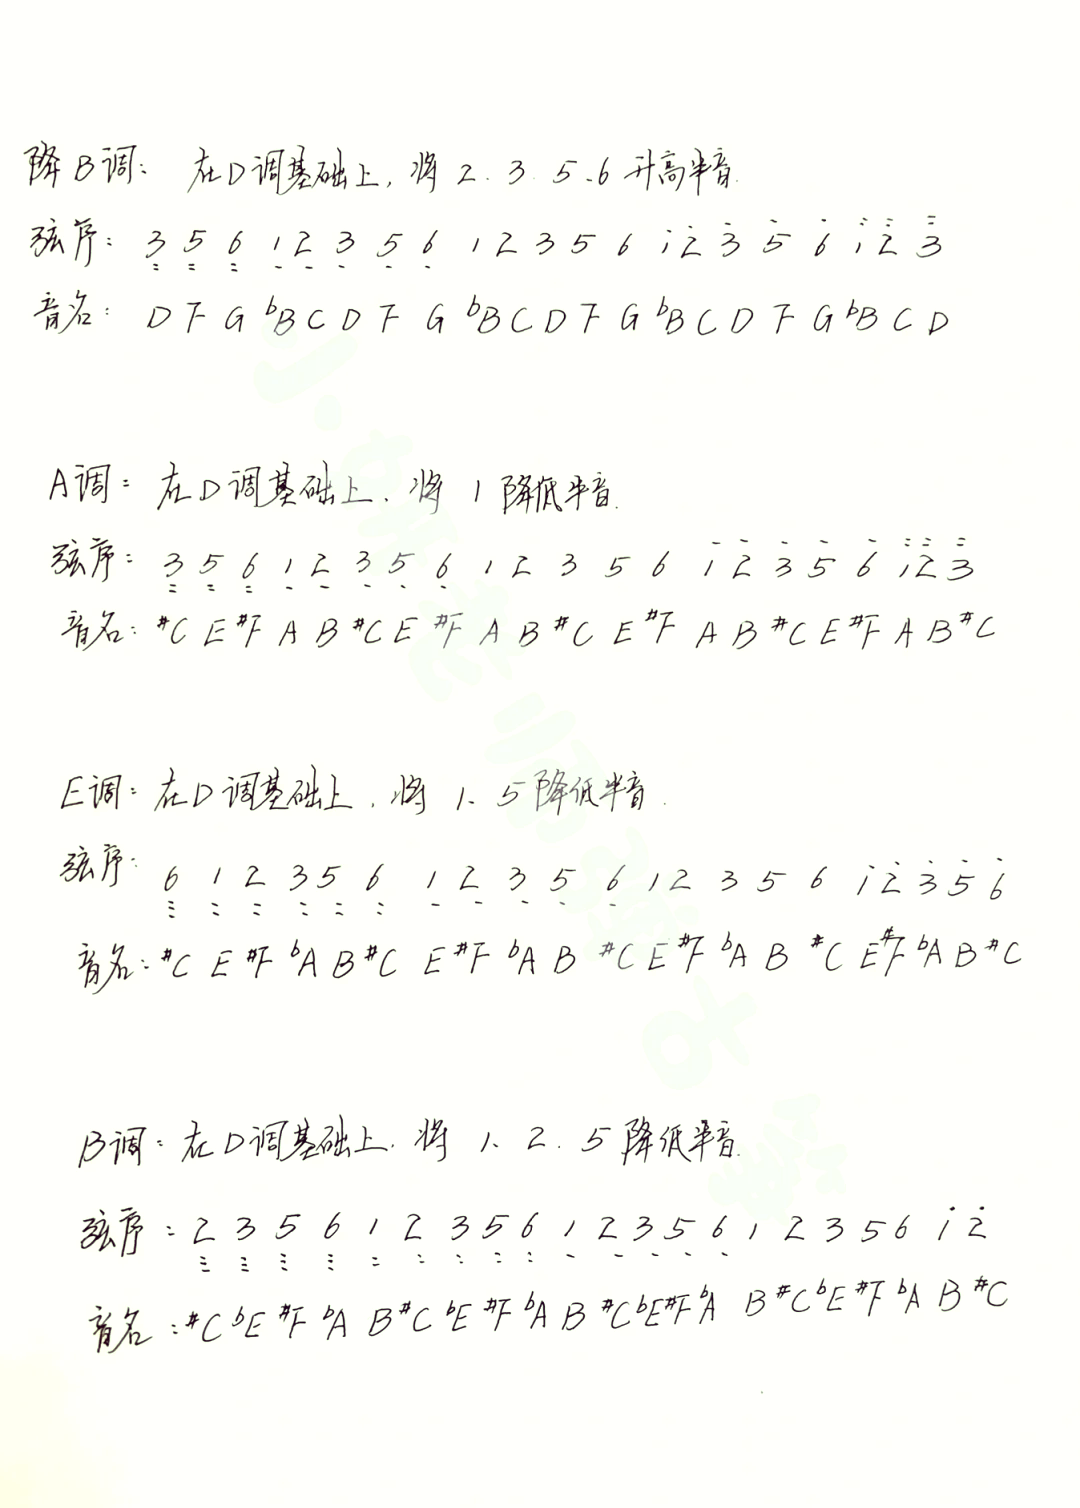 降B调: 在D调基础上, 将 2. 3. 5、6 升高半音.
弦序: 3 5 6 1 2 3 5 6 1 2 3 5 6 1 2 3 5 6 1 2 3
音名: D F G bB C D F G bB C D F G bB C D F G bB C D
A调: 在D调基础上. 将 1 降低半音.
弦序: 3 5 6 1 2 3 5 6 1 2 3 5 6 1 2 3 5 6 1 2 3
音名: #C E #F A B #C E #F A B #C E #F A B #C E #F A B #C
E调: 在D调基础上. 将 1、5降低半音.
弦序: 6 1 2 3 5 6 1 2 3 5 6 1 2 3 5 6 1 2 3 5 6
音名: #C E #F bA B #C E #F bA B #C E #F bA B #C E #F bA B #C
B调: 在D调基础上. 将 1、2. 5 降低半音.
弦序: 2 3 5 6 1 2 3 5 6 1 2 3 5 6 1 2 3 5 6 1 2
音名: #C bE #F bA B #C bE #F bA B #C bE #F bA B #C bE #F bA B #C